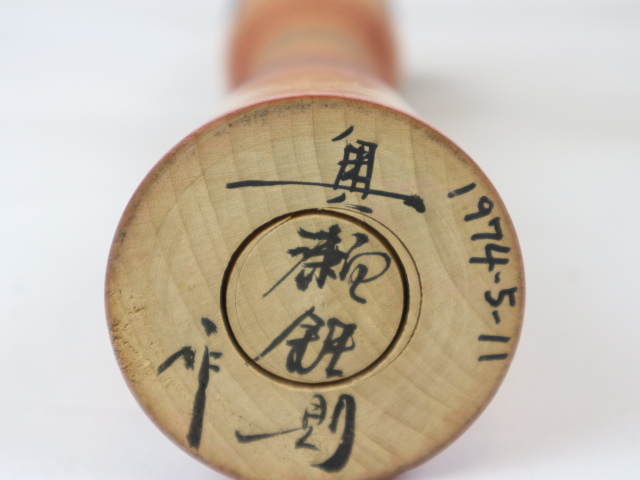 奥瀬鉄則
作
1974-5-11